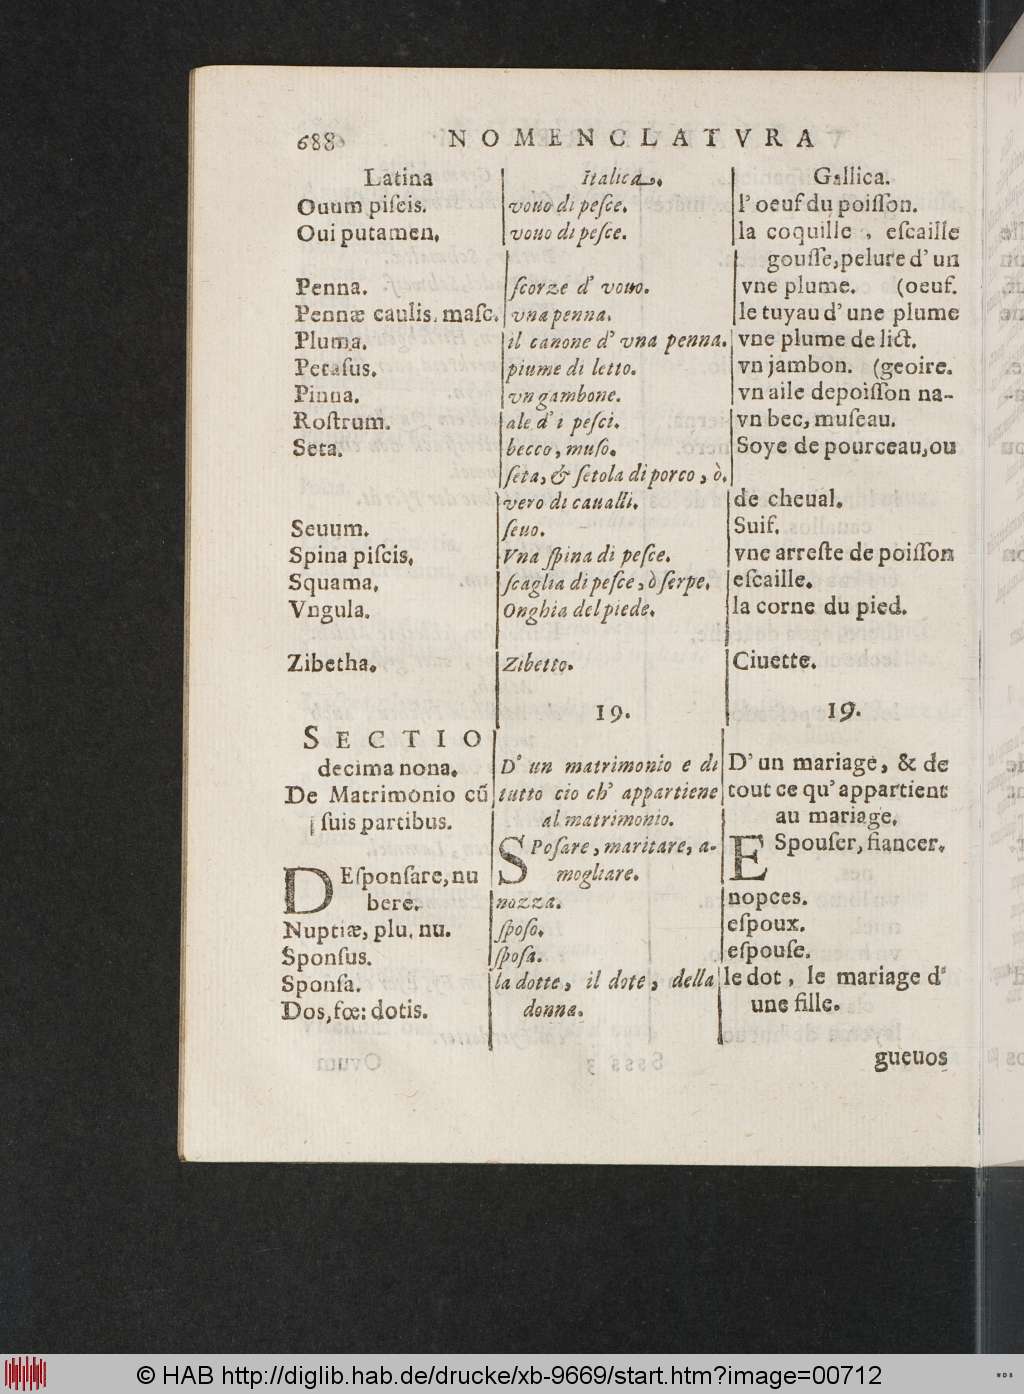 688 NOMENCLATVRA
Latina
Ouum piſcis.
Oui putamen.
Penna.
Pennæ caulis. maſc.
Pluma.
Petaſus.
Pinna.
Roſtrum.
Seta.
Seuum.
Spina piſcis.
Squama.
Vngula.
Zibetha.
SECTIO
decima nona.
De Matrimonio cũ
ſuis partibus.
DEſponſare, nu
bere.
Nuptiæ, plu. nu.
Sponſus.
Sponſa.
Dos, fœ: dotis.
Italica.
vouo di peſce.
vouo di peſce.
ſcorze d' vouo.
vna penna.
il canone d' vna penna.
piume di letto.
vn gambone.
ale d' i peſci.
becco, muſo.
ſeta, & ſetola di porco, ò.
vero di caualli.
ſeuo.
Vna ſpina di peſce.
ſcaglia di peſce, ò ſerpe.
Onghia del piede.
Zibetto.
19.
D' un matrimonio e di
tutto cio ch' appartiene
al matrimonio.
SPoſare, maritare, a-
mogliare.
nozza.
ſpoſo.
ſpoſa.
la dotte, il dote, della
donna.
Gallica.
l' oeuf du poiſſon.
la coquille, eſcaille
gouſſe, pelure d' un
vne plume. (oeuf.
le tuyau d' une plume
vne plume de lict.
vn jambon. (geoire.
vn aile depoiſſon na-
vn bec, muſeau.
Soye de pourceau, ou
de cheual.
Suif.
vne arreſte de poiſſon
eſcaille.
la corne du pied.
Ciuette.
19.
D' un mariage, & de
tout ce qu' appartient
au mariage.
ESpouſer, fiancer.
nopces.
eſpoux.
eſpouſe.
le dot, le mariage d'
une fille.
gueuos
© HAB http://diglib.hab.de/drucke/xb-9669/start.htm?image=00712